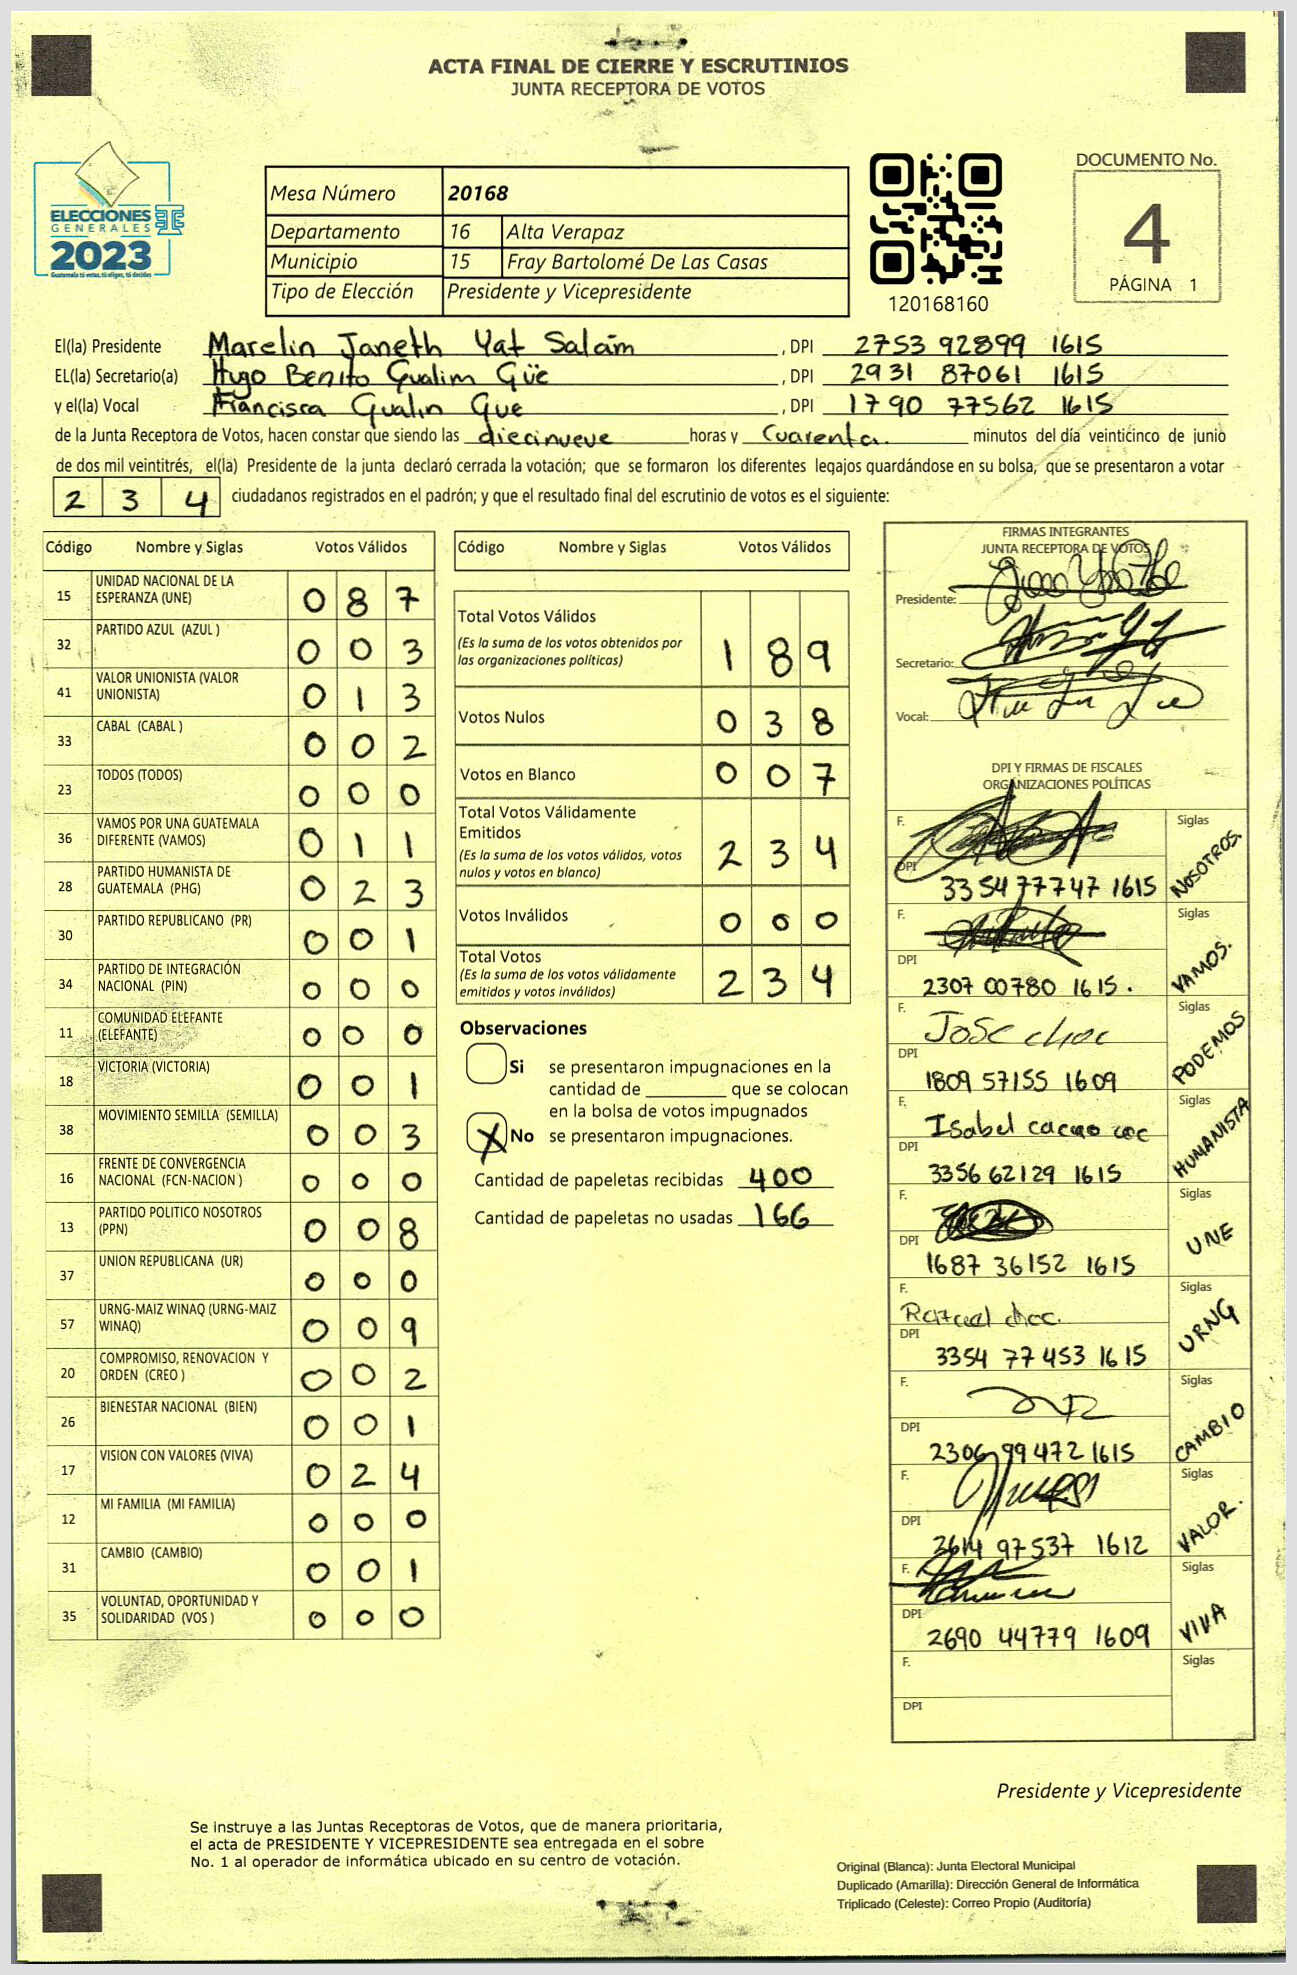 ACTA FINAL DE CIERRE Y ESCRUTINIOS
JUNTA RECEPTORA DE VOTOS
ELECCIONES
GENERALES
2023
Guatemala tú votas, tú eliges, tú decides
Mesa Número 20168
Departamento 16 Alta Verapaz
Municipio 15 Fray Bartolomé De Las Casas
Tipo de Elección Presidente y Vicepresidente
120168160
DOCUMENTO No.
4
PÁGINA 1
El(la) Presidente Marelin Janeth Yat Salam , DPI 2753 92899 1615
EL(la) Secretario(a) Hugo Benito Gualim Güe , DPI 2931 87061 1615
y el(la) Vocal Francisca Gualin Gue , DPI 1790 77562 1615
de la Junta Receptora de Votos, hacen constar que siendo las diecinueve horas y Cuarenta. minutos del día veinticinco de junio
de dos mil veintitrés, el(la) Presidente de la junta declaró cerrada la votación; que se formaron los diferentes legajos guardándose en su bolsa, que se presentaron a votar
2 3 4 ciudadanos registrados en el padrón; y que el resultado final del escrutinio de votos es el siguiente:
Código Nombre y Siglas Votos Válidos
15 UNIDAD NACIONAL DE LA ESPERANZA (UNE) 0 8 7
32 PARTIDO AZUL (AZUL ) 0 0 3
41 VALOR UNIONISTA (VALOR UNIONISTA) 0 1 3
33 CABAL (CABAL ) 0 0 2
23 TODOS (TODOS) 0 0 0
36 VAMOS POR UNA GUATEMALA DIFERENTE (VAMOS) 0 1 1
28 PARTIDO HUMANISTA DE GUATEMALA (PHG) 0 2 3
30 PARTIDO REPUBLICANO (PR) 0 0 1
34 PARTIDO DE INTEGRACIÓN NACIONAL (PIN) 0 0 0
11 COMUNIDAD ELEFANTE (ELEFANTE) 0 0 0
18 VICTORIA (VICTORIA) 0 0 1
38 MOVIMIENTO SEMILLA (SEMILLA) 0 0 3
16 FRENTE DE CONVERGENCIA NACIONAL (FCN-NACION ) 0 0 0
13 PARTIDO POLITICO NOSOTROS (PPN) 0 0 8
37 UNION REPUBLICANA (UR) 0 0 0
57 URNG-MAIZ WINAQ (URNG-MAIZ WINAQ) 0 0 9
20 COMPROMISO, RENOVACION Y ORDEN (CREO ) 0 0 2
26 BIENESTAR NACIONAL (BIEN) 0 0 1
17 VISION CON VALORES (VIVA) 0 2 4
12 MI FAMILIA (MI FAMILIA) 0 0 0
31 CAMBIO (CAMBIO) 0 0 1
35 VOLUNTAD, OPORTUNIDAD Y SOLIDARIDAD (VOS ) 0 0 0
Código Nombre y Siglas Votos Válidos
Total Votos Válidos
(Es la suma de los votos obtenidos por las organizaciones políticas) 1 8 9
Votos Nulos 0 3 8
Votos en Blanco 0 0 7
Total Votos Válidamente Emitidos
(Es la suma de los votos válidos, votos nulos y votos en blanco) 2 3 4
Votos Inválidos 0 0 0
Total Votos
(Es la suma de los votos válidamente emitidos y votos inválidos) 2 3 4
Observaciones
Si se presentaron impugnaciones en la
cantidad de ________ que se colocan
en la bolsa de votos impugnados
X No se presentaron impugnaciones.
Cantidad de papeletas recibidas 400
Cantidad de papeletas no usadas 166
FIRMAS INTEGRANTES
JUNTA RECEPTORA DE VOTOS
Presidente:
Secretario:
Vocal:
DPI Y FIRMAS DE FISCALES
ORGANIZACIONES POLÍTICAS
F. Siglas NOSOTROS.
DPI 3354 77747 1615
F. Siglas VAMOS.
DPI 2307 00780 1615.
F. Jose choc Siglas PODEMOS
DPI 1809 57155 1609
F. Isabel cacao coc Siglas HUMANISTA
DPI 3356 62129 1615
F. Siglas UNE
DPI 1687 36152 1615
F. choc. Siglas URNG
DPI 3354 77453 1615
F. Siglas CAMBIO
DPI 2306 99472 1615
F. Siglas VALOR.
DPI 2614 97537 1612
F. Siglas VIVA
DPI 2690 44779 1609
F. Siglas
DPI
Presidente y Vicepresidente
Se instruye a las Juntas Receptoras de Votos, que de manera prioritaria,
el acta de PRESIDENTE Y VICEPRESIDENTE sea entregada en el sobre
No. 1 al operador de informática ubicado en su centro de votación.
Original (Blanca): Junta Electoral Municipal
Duplicado (Amarilla): Dirección General de Informática
Triplicado (Celeste): Correo Propio (Auditoría)